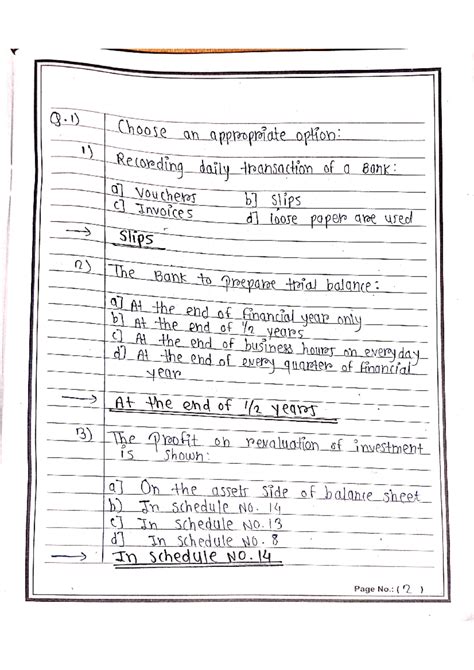 Q.1) Choose an appropriate option:
1) Recording daily transaction of a Bank:
a] Vouchers b] Slips
c] Invoices d] loose paper are used
→ Slips
2) The Bank to prepare trial balance:
a] At the end of financial year only
b] At the end of 1/2 years
c] At the end of business hours on everyday
d] At the end of every quarter of financial
year
→ At the end of 1/2 years
3) The Profit on revaluation of investment
is shown:
a] On the assets side of balance sheet
b] In schedule NO. 14
c] In schedule NO. 13
d] In schedule NO. 8
→ In schedule NO. 14
Page No.: ( 2 )